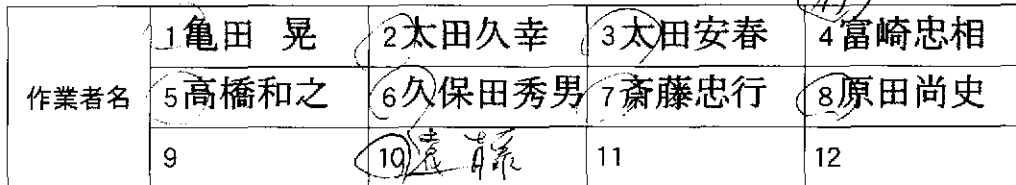 1亀田 晃 2太田久幸 3太田安春 4富崎忠相
作業者名 5高橋和之 6久保田秀男 7斎藤忠行 8原田尚史
9 10遠藤 11 12